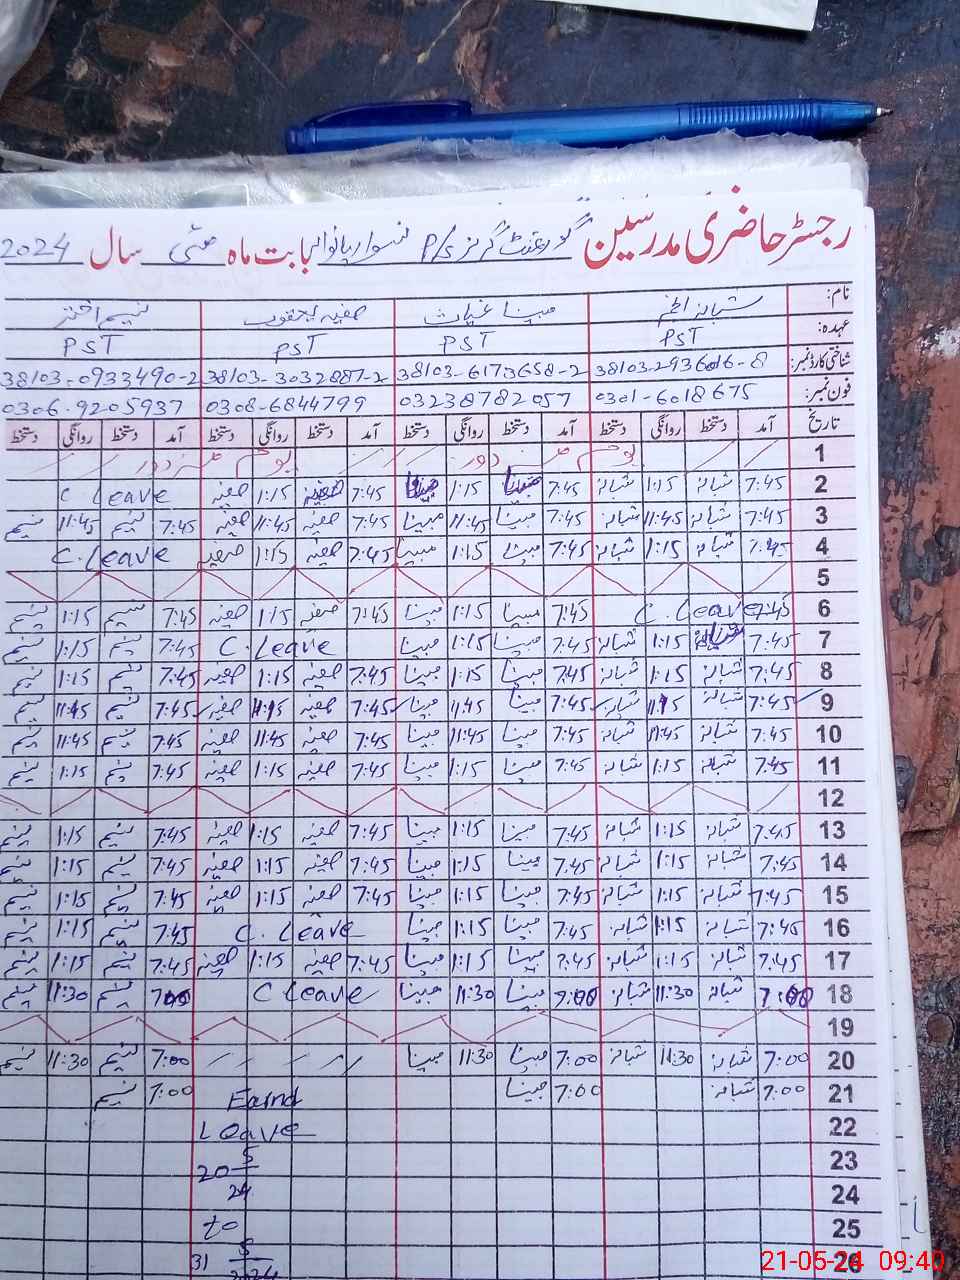 رجسٹر حاضری مدرسین گورنمنٹ گرلز P/S بابت ماہ مئی سال 2024
نام: شبانہ انجم مبینا غیاث صفیہ یعقوب نسیم اختر
عہدہ: PST PST PST PST
شناختی کارڈ نمبر: 38103-6173658-2 38103-3032887-2 38103-0933490-2
فون نمبر: 0301-6018675 03238782057 0308-6844799 0306-9205937
تاریخ آمد دستخط روانگی دستخط آمد دستخط روانگی دستخط آمد دستخط روانگی دستخط آمد دستخط روانگی دستخط
1 یوم مزدور یوم مزدور
2 7:45 شبانہ 1:15 شبانہ 7:45 مبینا 1:15 مبینا 7:45 صفیہ 1:15 صفیہ C. Leave
3 7:45 شبانہ 11:45 شبانہ 7:45 مبینا 11:45 مبینا 7:45 صفیہ 11:45 صفیہ 7:45 نسیم 11:45 نسیم
4 7:45 شبانہ 1:15 شبانہ 7:45 مبینا 1:15 مبینا 7:45 صفیہ 1:15 صفیہ C. Leave
5
6 7:45 C. Leave 7:45 مبینا 1:15 مبینا 7:45 صفیہ 1:15 صفیہ 7:45 نسیم 1:15 نسیم
7 7:45 شبانہ 1:15 شبانہ 7:45 مبینا 1:15 مبینا C. Leave 7:45 نسیم 1:15 نسیم
8 7:45 شبانہ 1:15 شبانہ 7:45 مبینا 1:15 مبینا 7:45 صفیہ 1:15 صفیہ 7:45 نسیم 1:15 نسیم
9 7:45 شبانہ شبانہ 7:45 مبینا 11:45 مبینا 7:45 صفیہ صفیہ 7:45 نسیم 11:45 نسیم
10 7:45 شبانہ 11:45 شبانہ 7:45 مبینا 11:45 مبینا 7:45 صفیہ 11:45 صفیہ 7:45 نسیم 11:45 نسیم
11 7:45 شبانہ 1:15 شبانہ 7:45 مبینا 1:15 مبینا 7:45 صفیہ 1:15 صفیہ 7:45 نسیم 1:15 نسیم
12
13 7:45 شبانہ 1:15 شبانہ 7:45 مبینا 1:15 مبینا 7:45 صفیہ 1:15 صفیہ 7:45 نسیم 1:15 نسیم
14 7:45 شبانہ 1:15 شبانہ 7:45 مبینا 1:15 مبینا 7:45 صفیہ 1:15 صفیہ 7:45 نسیم 1:15 نسیم
15 7:45 شبانہ 1:15 شبانہ 7:45 مبینا 1:15 مبینا 7:45 صفیہ 1:15 صفیہ 7:45 نسیم 1:15 نسیم
16 7:45 شبانہ 1:15 شبانہ 7:45 مبینا 1:15 مبینا C. Leave 7:45 نسیم 1:15 نسیم
17 7:45 شبانہ 1:15 شبانہ 7:45 مبینا 1:15 مبینا 7:45 صفیہ 1:15 صفیہ 7:45 نسیم 1:15 نسیم
18 7:00 شبانہ 11:30 شبانہ 7:00 مبینا 11:30 مبینا C Leave 7:00 نسیم 11:30 نسیم
19
20 7:00 شبانہ 11:30 شبانہ 7:00 مبینا 11:30 مبینا 7:00 نسیم 11:30 نسیم
21 7:00 شبانہ 7:00 مبینا Earnd 7:00 نسیم
22 Leave
23 20 5
24 24
25 to
26 31 5
2024
21-05-24 09:40